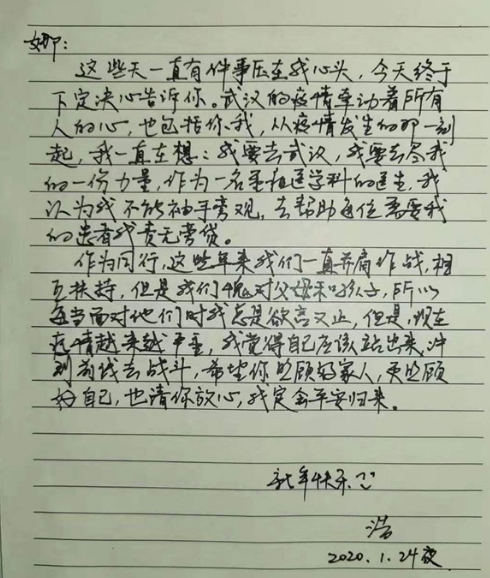 娜：
这些天一直有件事压在我心头，今天终于
下定决心告诉你。武汉的疫情牵动着所有
人的心，也包括你我，从疫情发生的那一刻
起，我一直在想：我要去武汉，我要去尽我
的一份力量，作为一名重症医学科的医生，我
认为我不能袖手旁观，去帮助每位需要我
的患者我责无旁贷。
作为同行，这些年来我们一直并肩作战，相
互扶持，但是我们愧对父母和孩子，所以
每当面对他们时我总是欲言又止，但是，现在
疫情越来越严重，我觉得自己应该站出来，冲
到前线去战斗，希望你照顾好家人，更照顾
好自己，也请你放心，我定会平安归来。
新年快乐
浩
2020.1.24夜